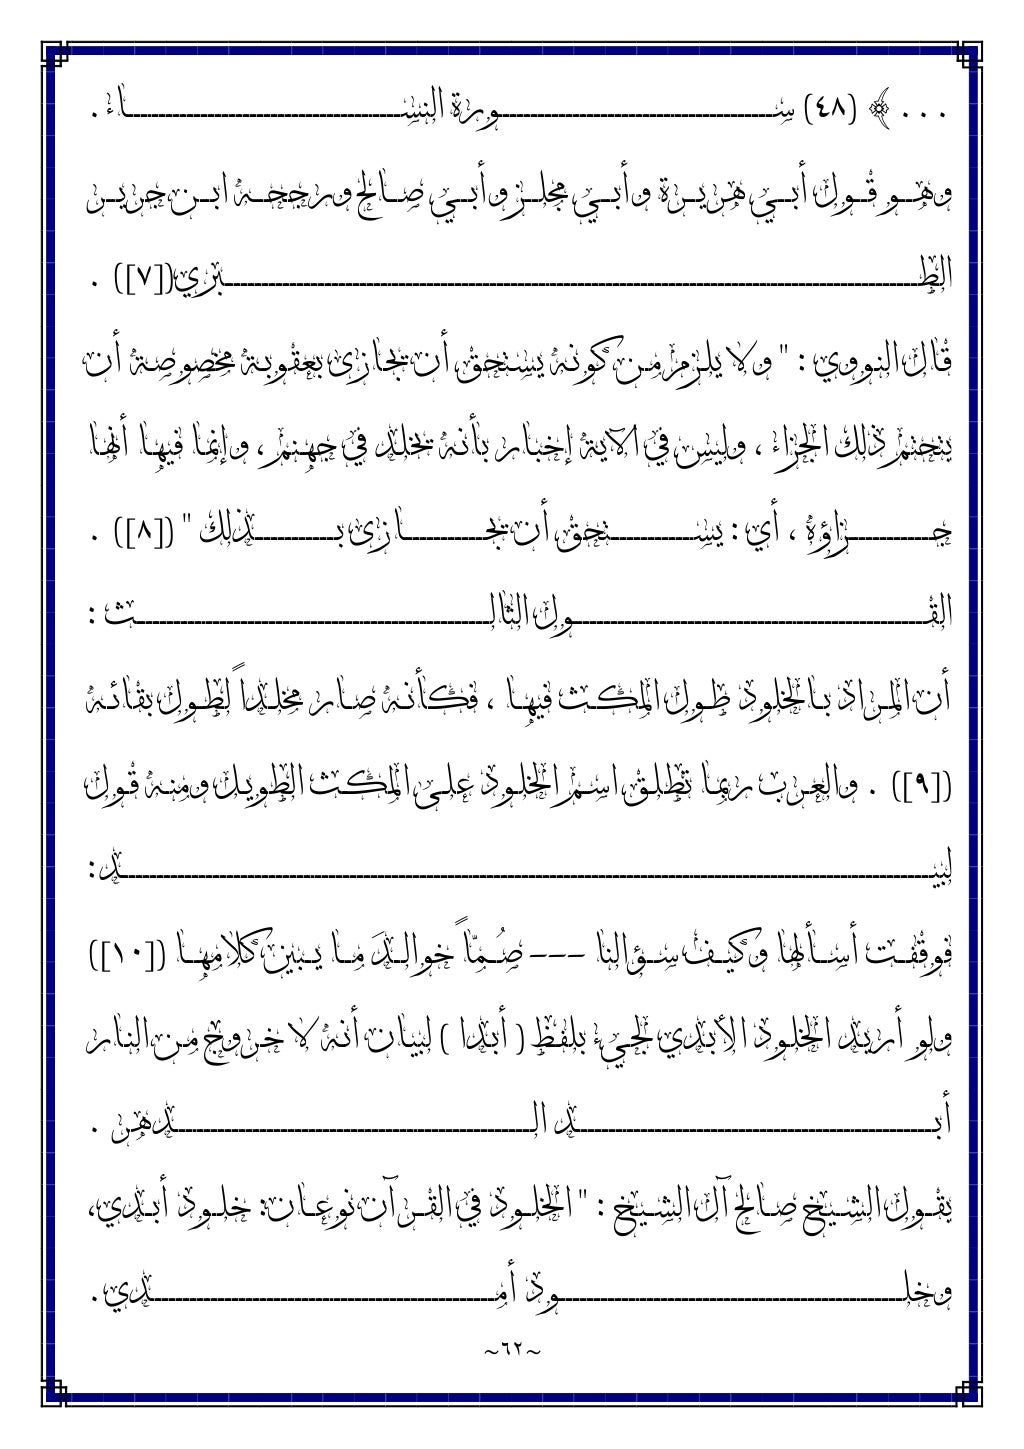 . . . ﴾ (٤٨) سورة النساء .
وهو قول أبي هريرة وأبي مجلز وأبي صالح ورجحه ابن جرير
الطبري([٧]) .
قال النووي : " ولا يلزم من كونه يستحق أن يجازى بعقوبة مخصوصة أن
يتحتم ذلك الجزاء ، وليس في الآية إخبار بأنه يخلد في جهنم ، وإنما فيها أنها
جزاؤه ، أي : يستحق أن يجازى بذلك " ([٨]) .
القول الثالث :
أن المراد بالخلود طول المكث فيها ، فكأنه صار مخلداً لطول بقائه
([٩]) . والعرب ربما تطلق اسم الخلود على المكث الطويل ومنه قول
لبيد :
فوقفت أسألها وكيف سؤالنا --- صُمّاً خوالدَ ما يبين كلامها ([١٠])
ولو أريد الخلود الأبدي لجيء بلفظ ( أبدا ) لبيان أنه لا خروج من النار
أبد الدهر .
يقول الشيخ صالح آل الشيخ : " الخلود في القرآن نوعان: خلود أبدي،
وخلود أمدي .
~٦٢~